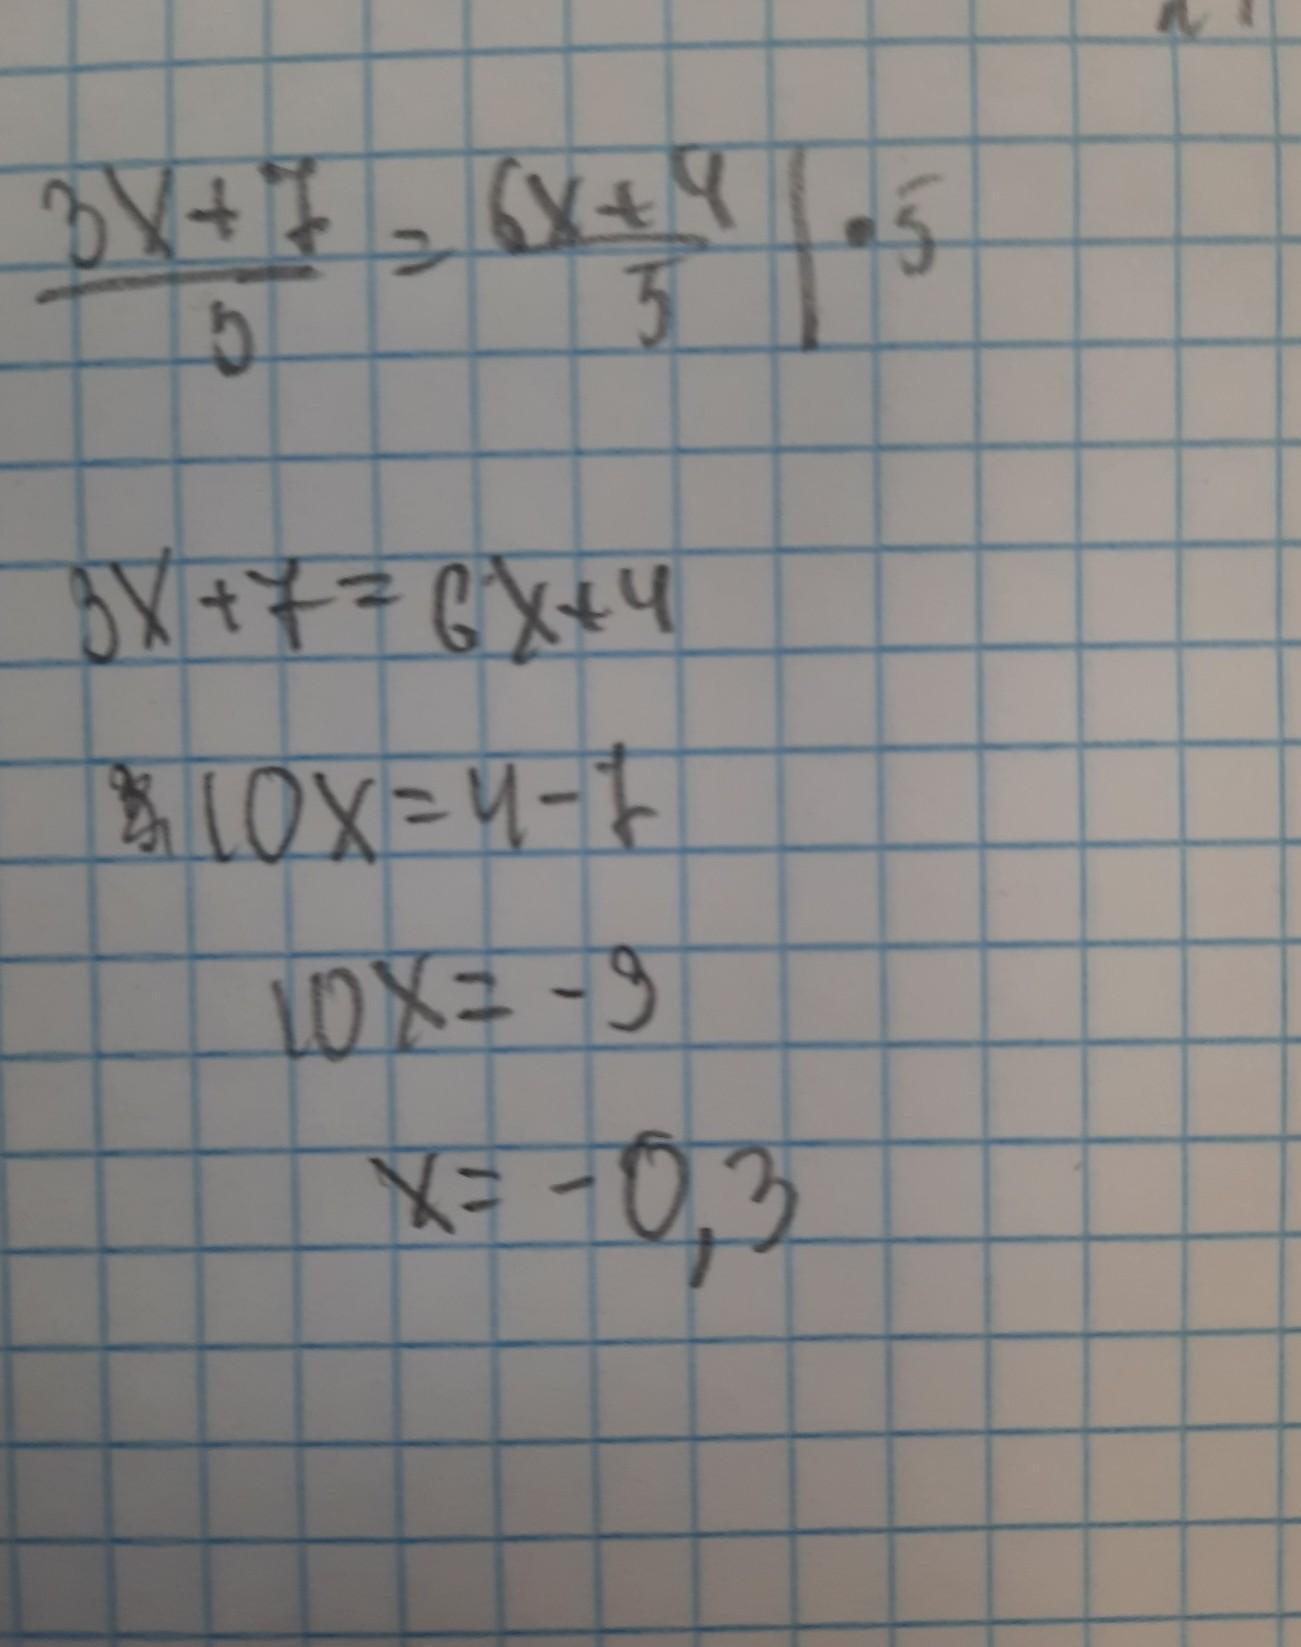 3x+7/5 = 6x+4/5 | • 5
3x+7=6x+4
10x=4-7
10x=-3
x=-0,3